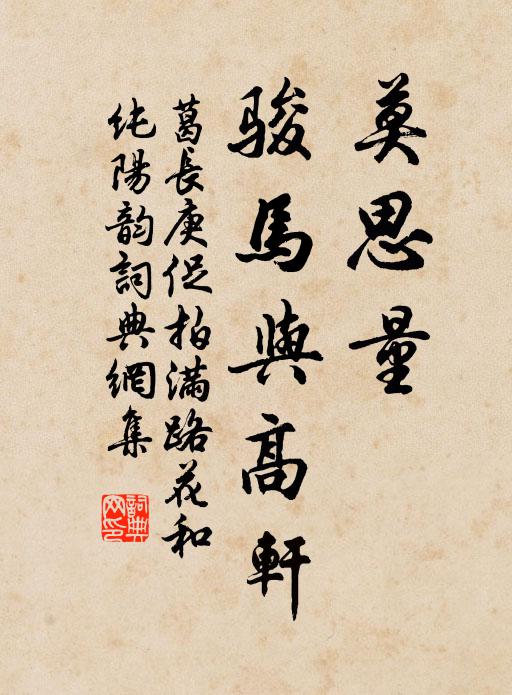 莫思量
駿馬與高軒
葛長庚促拍滿路花和
純陽韵詞典網集
詞典網印